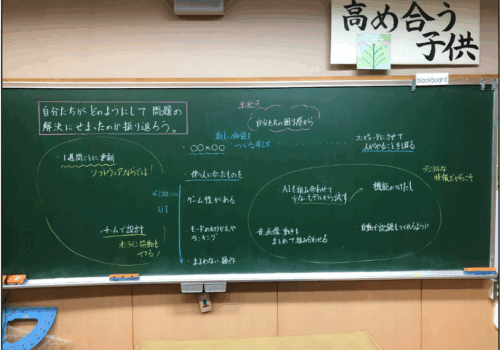 高め合う
子供
blackboard
自分たちが どのようにして 問題の
解決にせまったのか振り返ろう。
自分たちの困り感から
新しい価値を
つくり出す
〇〇×〇〇
コンピュータにさせて
人がやることを探る
・1週間ごとに更新
ソフトウェアならでは!
使う人に合ったものを
UI
・ゲーム性がある
AIを組み合わせて
機能のけたし
デジタルな
情報だからこそ
・チームで設計
オンライン協働も
できる!
モードの切りかえや
ランキング
音、画像、動きを
まとめて組み合わせる
自動で記録してくれるように
・まよわない操作